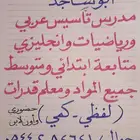 مدرس تأسيس عربي
ورياضيات وانجليزي
متابعة ابتدائي ومتوسط
جميع المواد ومعلم قدرات
(لفظي - كمي) حضوري